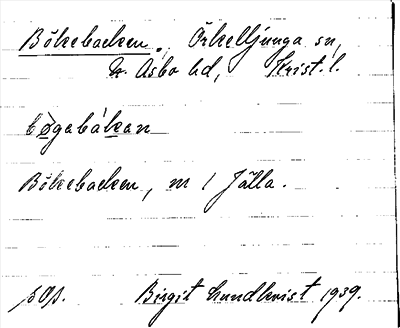 Bökebacken. Örkelljunga sn,
N. Åsbo hd, Krist. l.
bøgabákan
Bökebacken, m / Jälla.
Birgit Lundkvist 1939.